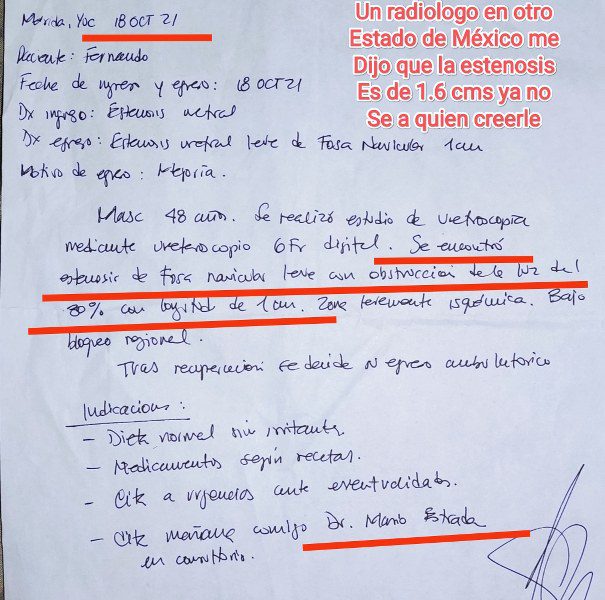 Mérida, Yuc 18 OCT 21
Un radiologo en otro
Estado de México me
Dijo que la estenosis
Es de 1.6 cms ya no
Se a quien creerle
Paciente: Fernando
Fecha de ingreso y egreso: 18 OCT 21
Dx ingreso: Estenosis uretral
Dx egreso: Estenosis uretral leve de Fosa Navicular 1cm
Motivo de egreso: Mejoría.
Masc 48 años. Se realizó estudio de uretroscopia
mediante ureteroscopio 6Fr digital. Se encontró
estenosis de Fosa navicular leve con obstrucción de la luz del
80% con longitud de 1cm. Zona levemente isquémica. Bajo
bloqueo regional.
Tras recuperacion se decide su egreso ambulatorio
Indicaciones:
- Dieta normal sin irritantes.
- Medicamentos según recetas.
- Cita a urgencias ante eventualidades.
- Cita mañana conmigo Dr. Mario Estrada
en consultorio.